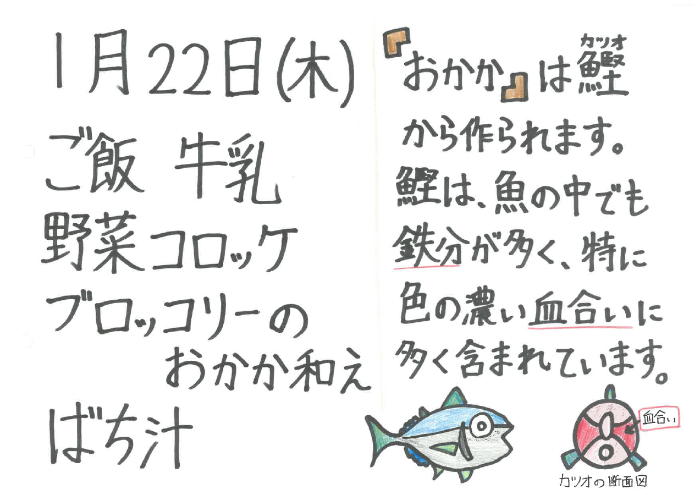 1月22日(木)
ご飯 牛乳
野菜コロッケ
ブロッコリーの
おかか和え
ばち汁
『おかか』は鰹
カツオ
から作られます。
鰹は、魚の中でも
鉄分が多く、特に
色の濃い血合いに
多く含まれています。
血合い
カツオの断面図